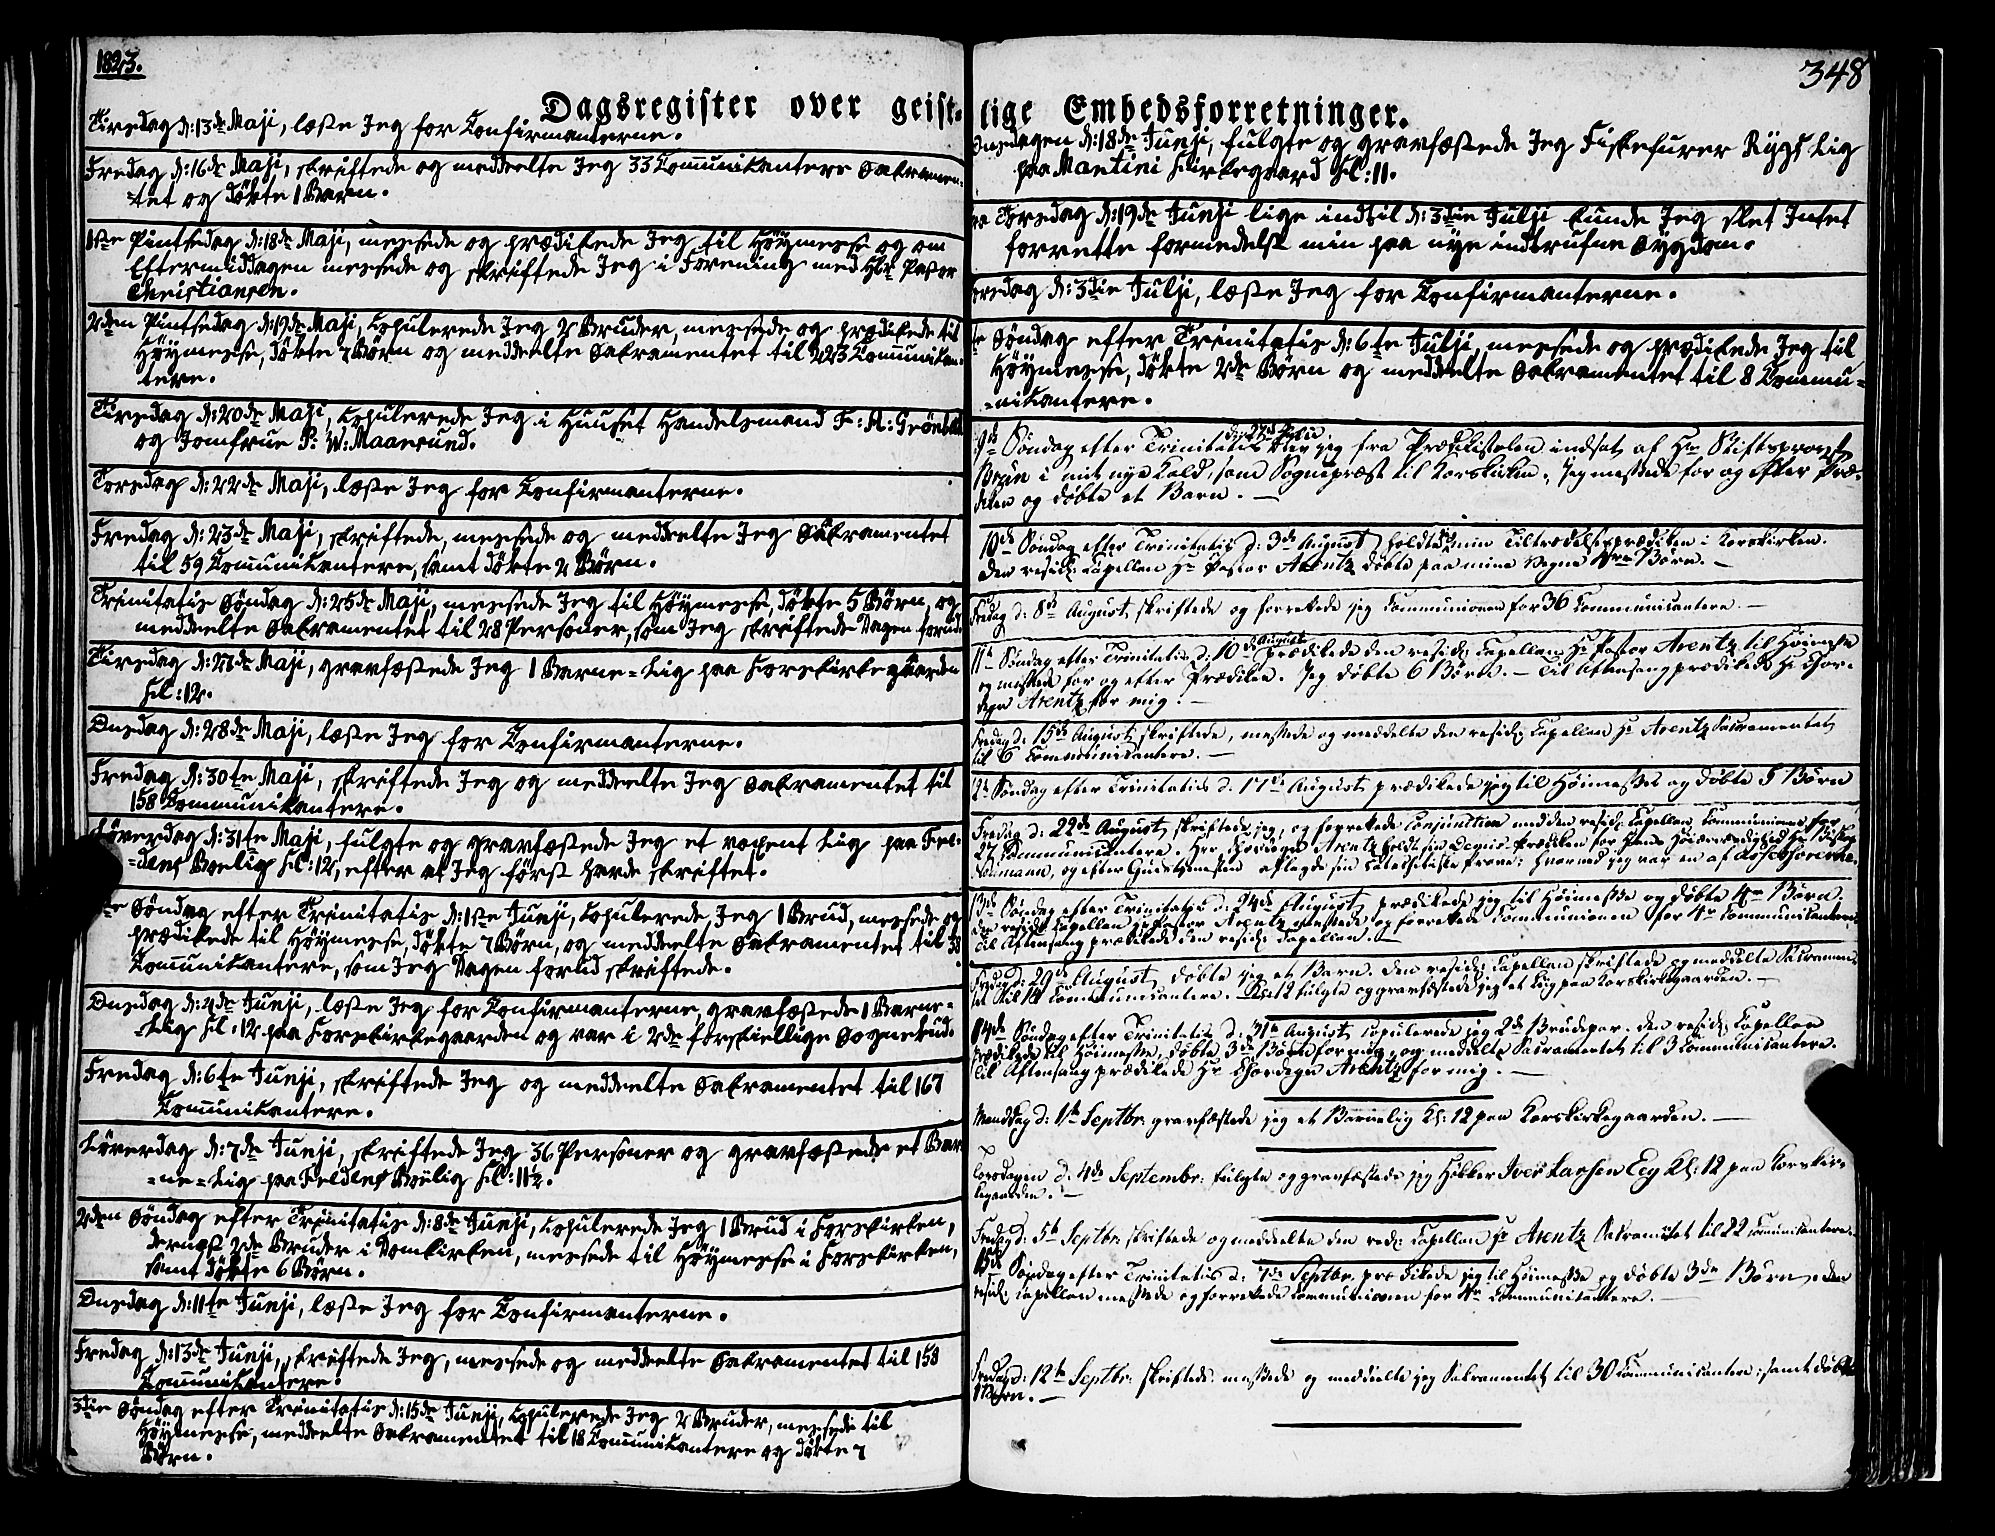 1823.
348
Dagsregister over geist-
lige Embedsforretninger.
Tirsdag d: 13de Maji, læste Jeg for Confirmanterne.
Fredag d: 16de Maji, skriftede og meddeelte Jeg 33 Communikantere Sakramen-
tet og döbte 1 Barn.
1ste Pintsedag d: 18de Maji, messede og prædikede Jeg til Höymesse og om
Eftermiddagen messede og skriftede Jeg i Forening med Hr Pastor
Christiansen.
2den Pintsedag d: 19de Maji, Copulerede Jeg 2 Bruder, messede og prædikede til
Höymesse, döbte 7 Börn og meddeelte Sakramentet til 223 Communikan-
tere.
Tirsdag d: 20de Maji, Copulerede Jeg i Huuset Handelsmand F: A:
og Jomfrue P: W: Maanrund.
Torsdag d: 22de Maji, læste Jeg for Confirmanterne.
Fredag d: 23de Maji, skriftede, messede og meddeelte Jeg Sakramentet
til 59 Communikantere, samt döbte 2 Börn.
Trinitatis Söndag d: 25de Maji, messede Jeg til Höymesse, döbte 5 Börn, og
meddeelte Sakramentet til 28 Personer, som Jeg skriftede Dagen forud.
Tirsdag d: 27de Maji, gravfæstede Jeg 1 Barne-Lig paa Korskirkegaarden
Kl: 12.
Onsdag d: 28de Maji, læste Jeg for Confirmanterne.
Fredag d: 30te Maji, skriftede Jeg og meddeelte Jeg Sakramentet til
158 Communikantere.
Löverdag d: 31te Maji, fulgte og gravfæstede Jeg et voxent Lig paa Fel-
-dens Boelig Kl: 12, efter at Jeg först havde skriftet.
Söndag efter Trinitatis d: 1ste Junji, Copulerede Jeg 1 Brud, messede og
prædikede til Höymesse, döbte 7 Börn, og meddeelte Sakramentet til 38
Communikantere, som Jeg Dagen forud skriftede.
Onsdag d: 4de Junji, læste Jeg for Confirmanterne, gravfæstede 1 Barne-
-Lig Kl: 12 paa Korskirkegaarden og var i 2de forskiellige Sognebud.
Fredag d: 6te Junji, skriftede Jeg og meddeelte Sakramentet til 167
Communikantere.
Löverdag d: 7de Junji, skriftede Jeg 36 Personer og gravfæstede et Bar-
-ne-Lig paa Boelig Kl: 11½.
2den Söndag efter Trinitatis d: 8de Junji, Copulerede Jeg 1 Brud i Korskirken,
dernæst 2de Bruder i Domkirken, messede til Höymesse i Korskirken,
samt döbte 6 Börn.
Onsdag d: 11te Junji, læste Jeg for Confirmanterne.
Fredag d: 13de Junji, skriftede Jeg, messede og meddeelte Sakramentet til 158
Communikantere.
3die Söndag efter Trinitatis d: 15de Junji, Copulerede Jeg 2 Bruder, messede til
Höymesse, meddeelte Sakramentet til 18 Communikantere og döbte 7
Börn.
Onsdagen d: 18de Junji, fulgte og gravfæstede Jeg Lig
paa Kirkegaard Kl: 11.
Torsdag d: 19de Junji lige indtil d: 3die Julji kunde Jeg slet Intet
forrette formedelst min paa nye indtrufne Sygdom.
Torsdag d: 3die Julji, læste Jeg for Confirmanterne.
Söndag efter Trinitatis d: 6te Julji, messede og prædikede Jeg til
Höymesse, döbte 2de Börn og meddeelte Sakramentet til 8 Commu-
-nikantere.
9de Søndag efter Trinitatis d: 27de Julii blev jeg fra Prædikestolen indsat af Hr Stiftsprovst
i mit nye Kald, som Sognepræst til Korskirken. Jeg messede for og efter Præ-
diken og døbte et Barn. —
10de Søndag efter Trinitatis d: 3de August holdte min Tiltrædelsesprædiken i Korskirken.
Den resid: Capellan Hr Pastor Arentz døbte paa mine Vegne Børn. —
Fredag d: 8de August skriftede og forrettede jeg Communionen for 36 Communicantere. —
11te Søndag efter Trinitatis d: 10de August prædikede den resid: Capellan Hr Pastor Arentz til Høimesse
og messede for og efter Prædiken. Jeg døbte 6 Børn. — Til Aftensang prædikede Hr Chor-
degn Arentz for mig. —
Fredag d: 15de August skriftede, messede og meddelte den resid: Capellan Hr Arentz Sacramentet
til 6 Communikantere. —
Søndag efter Trinitatis d. 17de August prædikede jeg til Høimesse og døbte 5 Børn
Fredag d: 22de August skriftede jeg, og forrettede Conjunction med den resid: Capellan Communionen for
27 Communicantere. Hr Chordegn Arentz holdt sin Prædiken for Hans Høiærværdighed Hr Biskop
og efter Gudstjenesten aflagde sin catechetiske Prøve; hvorved jeg var en af
13de Søndag efter Trinitatis d. 24de August prædikede jeg til Høimesse og døbte Børn.
Den resid: Capellan Hr Pastor Arentz messede og forrettede Communionen for Communicantere.
Til Aftensang prædikede den resid: Capellan. —
Fredag d: 29de August døbte jeg et Barn. Den resid: Capellan skriftede og meddelte Sacramen-
tet til Communicantere. Kl: 12 fulgte og gravfæstede jeg et Lig paa Korskirkegaarden. —
14de Søndag efter Trinitatis d: 31te August copulerede jeg 2de Brudepar. Den resid: Capellan
prædikede til Høimesse, døbte 3de Børn for mig, og meddelte Sacramentet til 3 Communicantere.
Til Aftensang prædikede Hr Chordegn Arentz for mig. —
Mandag d: 1te Septbr: gravfæstede jeg et Barnelig Kl: 12 paa Korskirkegaarden. —
Torsdagen d: 4de Septembr: fulgte og gravfæstede jeg Høkker Iver Larsen Eeg Kl: 12 paa Korskir-
kegaarden. —
Fredag d: 5te Septbr: skriftede og meddelte den resid: Capellan Hr Arentz Sakramentet til 22 Communicantere.
15de Søndag efter Trinitatis d: 7de Septbr. prædikede jeg til Høimesse og døbte 3de Børn. Den
resid: Capellan messede og forrettede Communionen for Communicantere. —
Fredag d: 12te Septbr: skriftede messede og meddelte jeg Sakramentet til 30 Communicantere; samt døbte
1 Barn. —